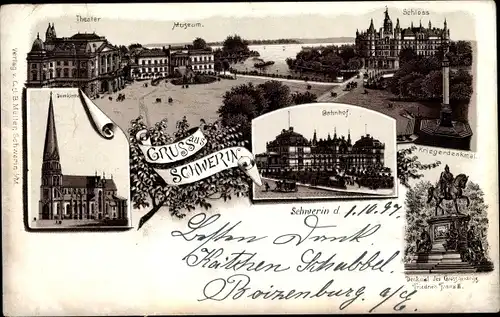 Theater
Museum.
Schloss
Domkirche
GRUSS AUS
SCHWERIN
Bahnhof.
Kriegerdenkmal.
Schwerin d. 1.10.97
Besten Dank
Kätchen Schabbel.
Boizenburg a/E.
Denkmal des Grossherzogs
Friedrich Franz II.
Verlag v. L. & B. Müller, Schwerin i/M.